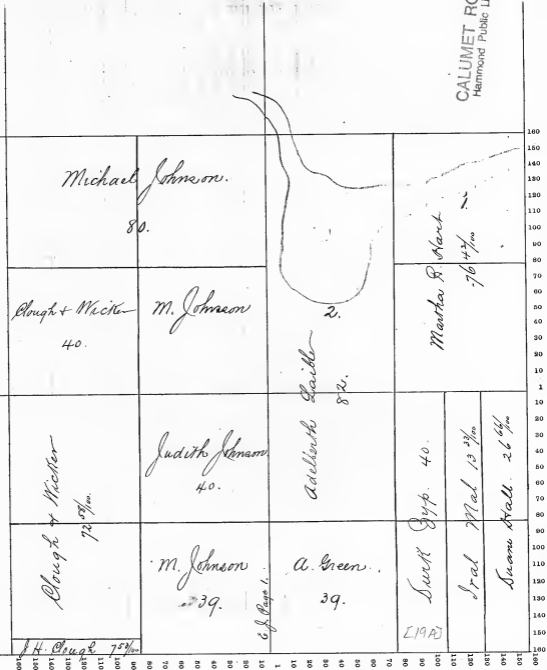 CALUMET RO
Hammond Public Li
Michael Johnson.
80.
Clough & Wicker
40.
M. Johnson
2.
Martha R. Hart
76 47/100
1
Adelberth
82.
Judith Johnson
40.
Clough & Wicker
72 50/100.
M. Johnson
39.
A. Green.
39.
E. J. Page 1.
40.
13 33/100
Duane Hall. 26 66/100
[19A]
J. H. Clough 7 50/100
160
150
140
130
120
110
100
90
80
70
60
50
40
30
20
10
1
10
20
30
40
50
60
70
80
90
100
110
120
130
140
150
160
160
150
140
130
120
110
100
90
80
70
60
50
40
30
20
10
1
10
20
30
40
50
60
70
80
90
100
110
120
130
140
150
160